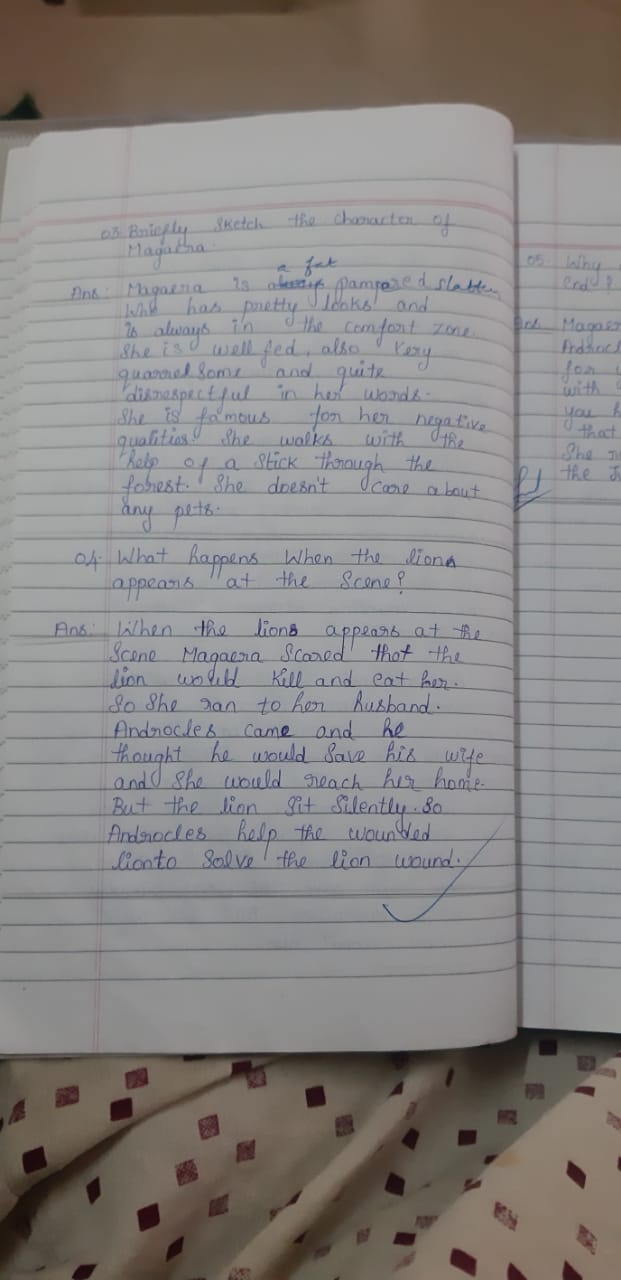 03. Briefly Sketch the character of
Magaera.
Ans: Magaeria is a fat pampared slattern
Who has pretty looks and
is always in the comfort zone.
She is well fed, also very
quarrel some and quite
disrespectful in her words.
She is famous for her negative
qualities. She walks with the
help of a stick through the
forest. She doesn't care about
any pets.
04. What happens When the lions
appears at the Scene?
Ans: When the lions appears at the
Scene Magaera Scared that the
lion would kill and eat her.
So She ran to her husband.
Androcles came and he
thought he would Save his wife
and She would reach her home.
But the lion Sit Silently. So
Androcles help the wounded
lionto Solve the lion wound.
05. Why
end ?
Ans. Magaer
Androcl
for
with
you h
that
She
the